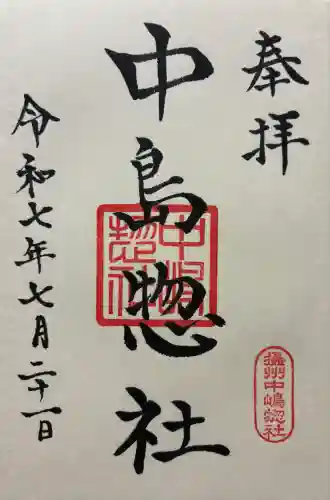 奉拝
摂州中嶋惣社
中島惣社
中嶋惣社
令和七年七月二十一日